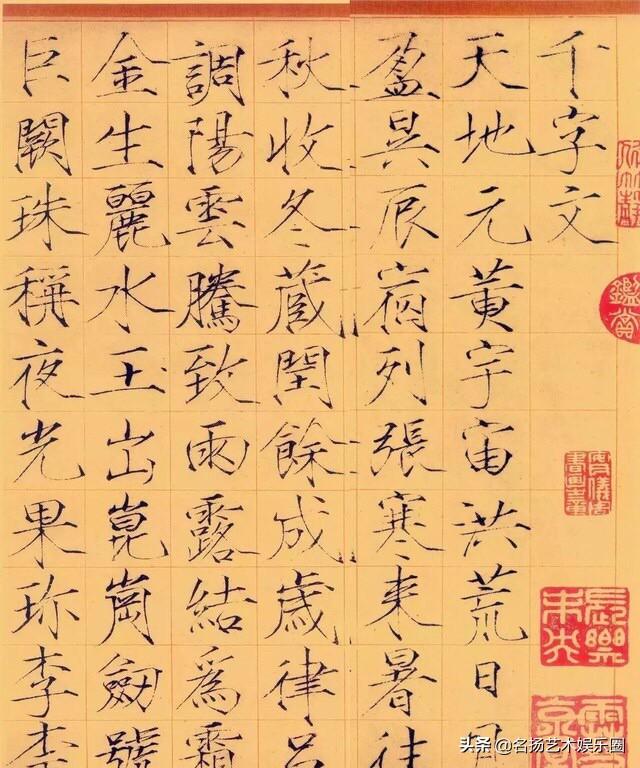 千字文
天地元黄宇宙洪荒日月
盈昃辰宿列張寒来暑往
秋收冬蔵閏餘成歳律吕
調陽雲騰致雨露結爲霜
金生麗水玉出崑崗劔號
巨闕珠稱夜光果珎李柰
長樂未央
头条 @名扬艺术娱乐圈